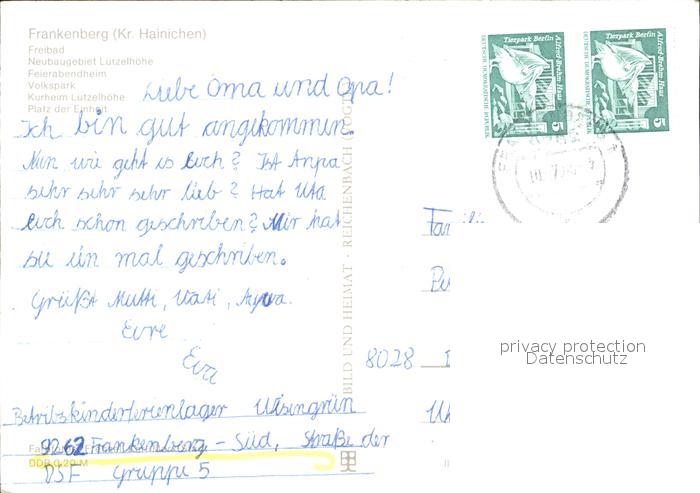 Frankenberg (Kr. Hainichen)
Freibad
Neubaugebiet Lützelhöhe
Feierabendheim
Volkspark
Kurheim Lützelhöhe
Platz der Einheit
Liebe Oma und Opa!
Ich bin gut angekommen.
Nun wie geht es Euch? Ist Anpa
sehr sehr sehr lieb? Hat Uta
Euch schon geschrieben? Mir hat
sie ein mal geschrieben.
Grüßt Mutti, Vati,
Eure
Eva
Betribskinderferienlager
9262 Frankenberg - Süd, Straße der
DSF Gruppe 5
DDR 0,20 M
BILD UND HEIMAT · REICHENBACH (VOGTL)
Tierpark Berlin Alfred-Brehm-Haus
DEUTSCHE DEMOKRATISCHE REPUBLIK
5
Tierpark Berlin Alfred-Brehm-Haus
DEUTSCHE DEMOKRATISCHE REPUBLIK
5
8028
privacy protection
Datenschutz